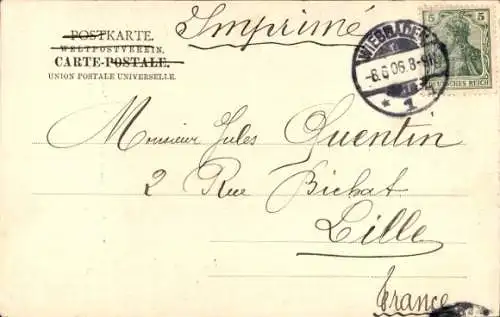 Imprimé
POSTKARTE.
WELTPOSTVEREIN.
CARTE-POSTALE.
UNION POSTALE UNIVERSELLE.
5 5
DEUTSCHES REICH
WIESBADEN
-8.6.06.8-9
* 1
Monsieur Jules Quentin
2 Rue Bichat
Lille
France